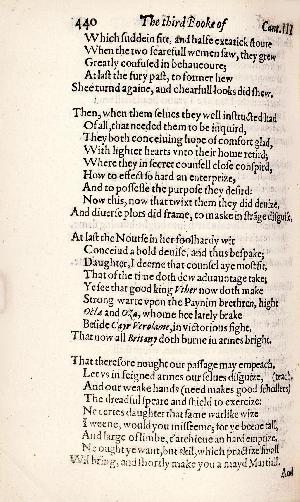 440 The third Booke of Cant. III
Which suddein fitt, and halfe extatick stoure
When the two fearefull women saw, they grew
Greatly confused in behaueoure;
At last the fury past, to former hew
Shee turnd againe, and chearfull looks did shew.
Then, when them selues they well instructed had
Of all, that needed them to be inquird,
They both conceiuing hope of comfort glad,
With lighter hearts vnto their home retird;
Where they in secret counsell close conspird,
How to effect so hard an enterprize,
And to possesse the purpose they desird:
Now this, now that twixt them they did deuize,
And diuerse plots did frame, to maske in strãge disguise.
At last the Nourse in her foolhardy wit
Conceiud a bold deuise, and thus bespake;
Daughter, I deeme that counsel aye most fit,
That of the time doth dew aduauntage take;
Ye see that good king Vther now doth make
Strong warre vpon the Paynim brethren, hight
Octa and Oza, whome hee lately brake
Beside Cayr Verolame, in victorious fight,
That now all Britany doth burne in armes bright.
That therefore nought our passage may empeach,
Let vs in feigned armes our selues disguize, (teach
And our weake hands (need makes good schollers)
The dreadful speare and shield to exercize:
Ne certes daughter that same warlike wize
I weene, would you misseeme; for ye beene tall,
And large of limbe, t'atchieue an hard emprize,
Ne ought ye want, but skil, which practize small
Wil bring, and shortly make you a mayd Martiall.
And